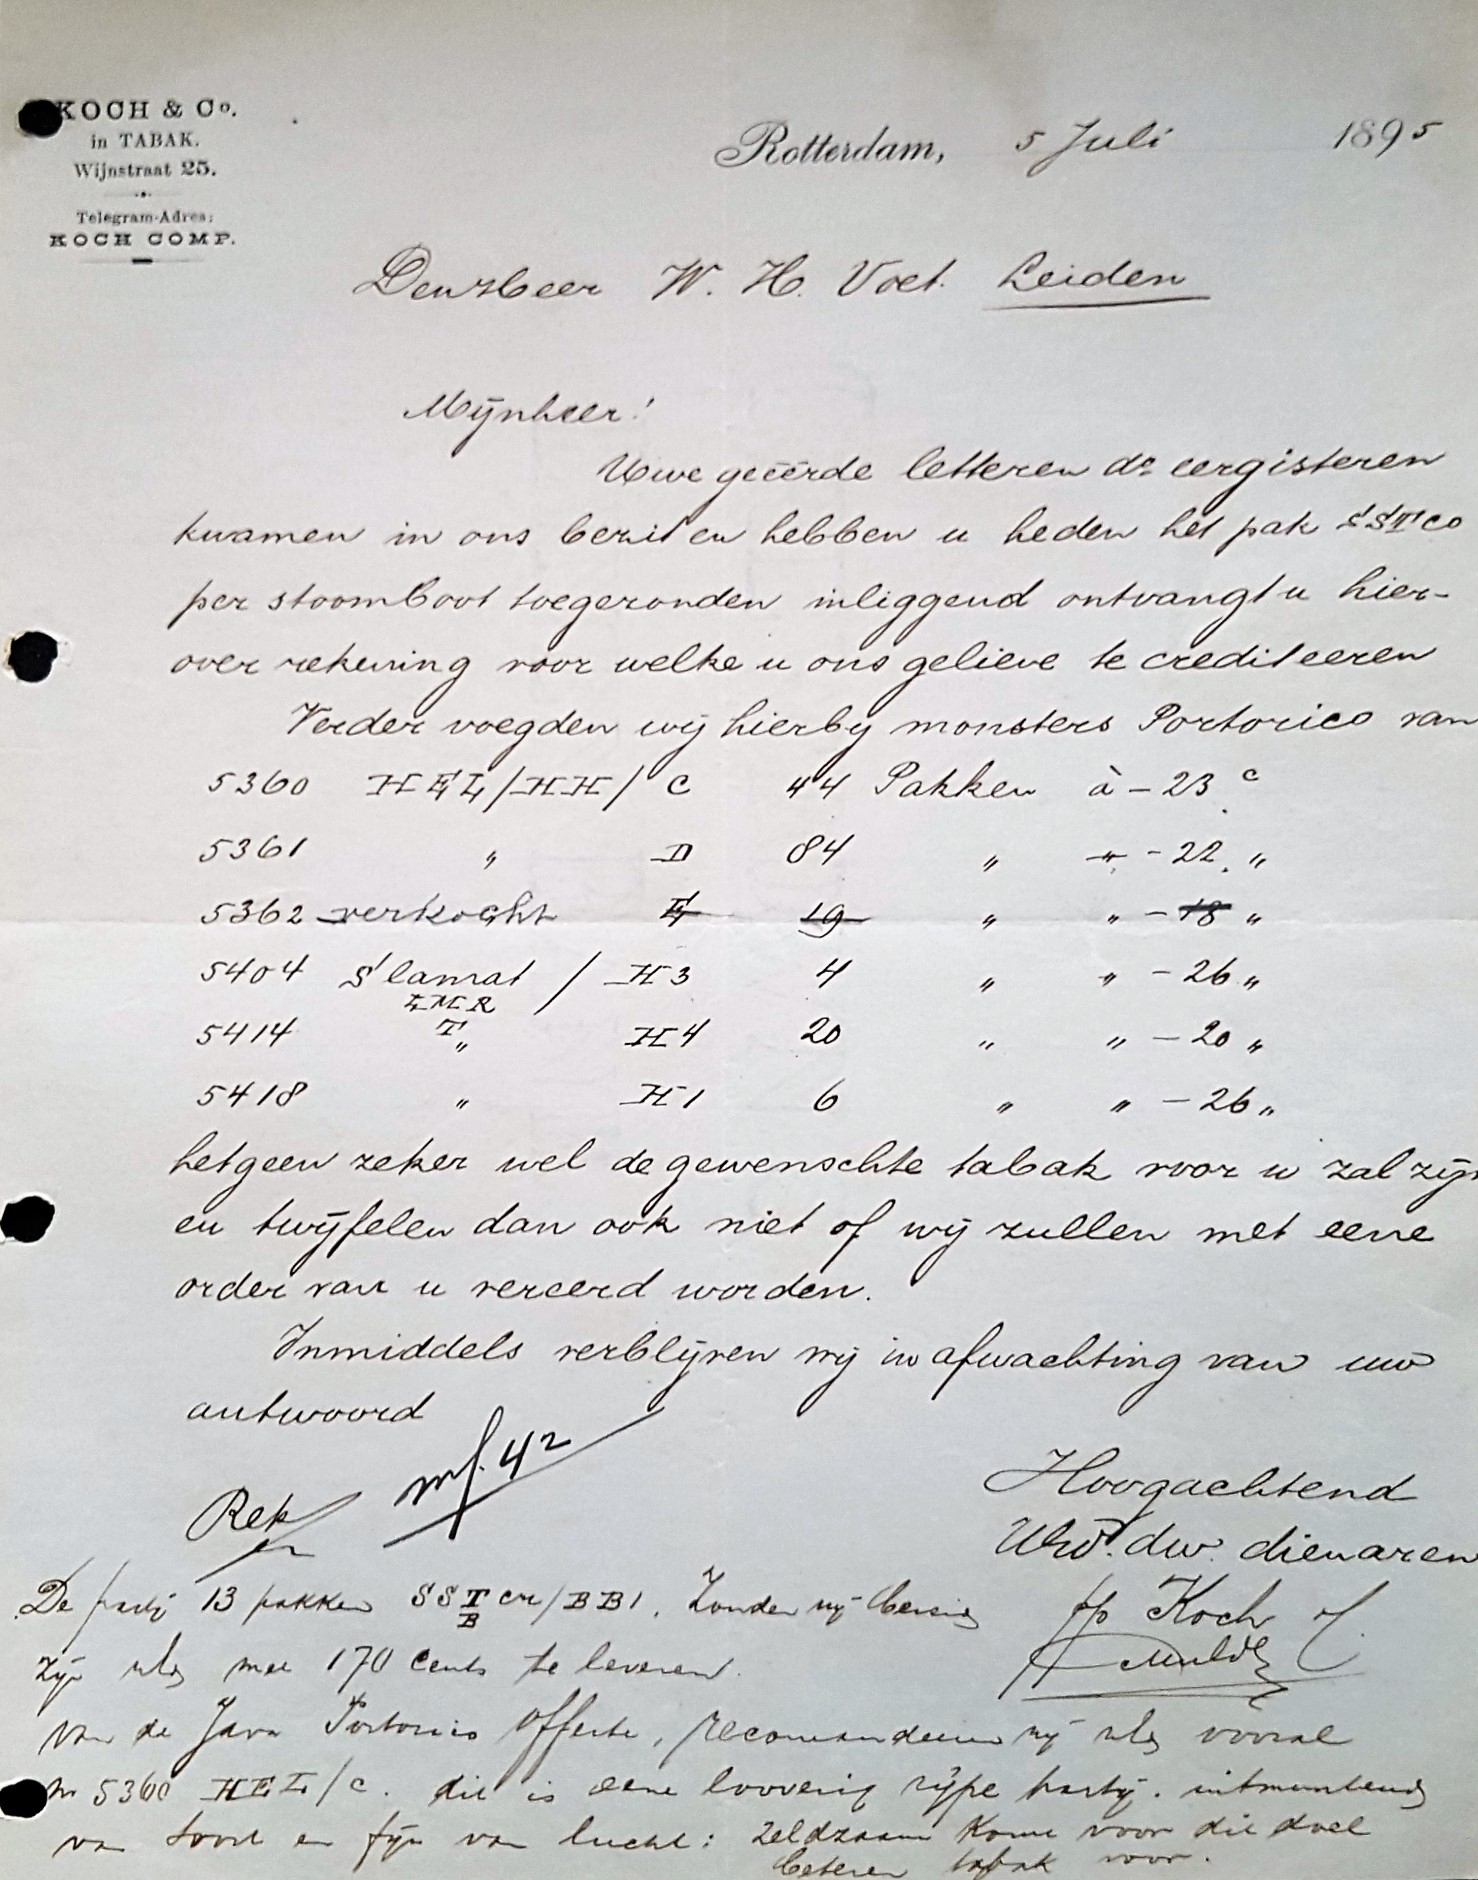 KOCH & Co.
in TABAK.
Wijnstraat 25.
Telegram-Adres:
KOCH COMP.
Rotterdam, 5 Juli 1895
Den Heer W. H. Voet. Leiden
Mijnheer!
Uwe geëerde letteren do eergisteren
kwamen in ons bezit en hebben u heden het pak SST co
per stoomboot toegezonden inliggend ontvangt u hier-
over rekening voor welke u ons gelieve te crediteeren
Verder voegden wij hierbij monsters Portorico van
5360 HEL/HH/ C 44 Pakken à - 23 c
5361 " D 84 " " - 22. "
5362 verkocht E 19 " " - 18 "
5404 S'lamat / H3 4 " " - 26 "
LMR
T
5414 " H4 20 " " - 20 "
5418 " H1 6 " " - 26 "
hetgeen zeker wel de gewenschte tabak voor u zal zijn
en twijfelen dan ook niet of wij zullen met eene
order van u vereerd worden.
Inmiddels verblijven wij in afwachting van uw
antwoord
Rek
42
Hoogachtend
Uw. dw. dienaren
pp Koch
Mulder
De partij 13 pakken SST co/BB1. Zonder wij
B
zijn mee 170 cents te leveren.
van de Java Portorico offerte, recomandeeren wij vooral
No 5360 HEL/C. dit is eene looverig rijpe partij. uitmuntend
van soort en fijn van lucht: zeldzaam kome voor dit doel
betere tabak voor.